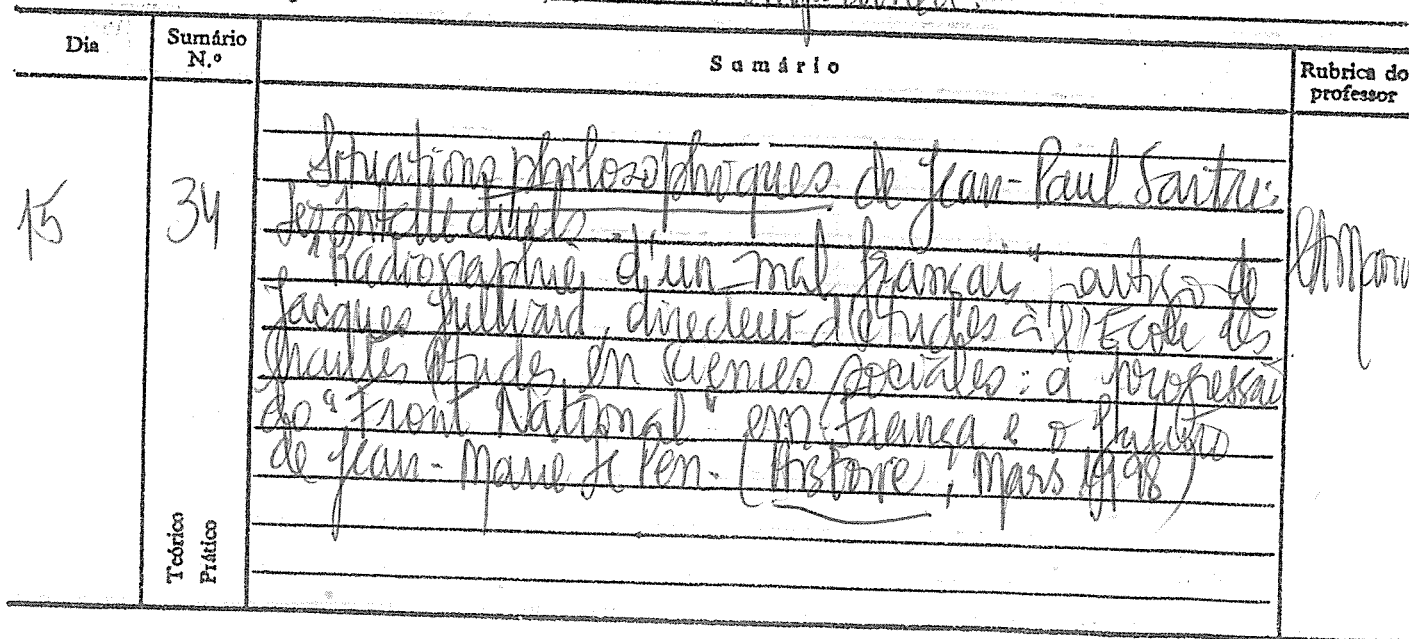 Dia
Sumário N.º
Sumário
Rubrica do professor
15
34
Situations philosophiques de Jean-Paul Sartre:
les intellectuels.
"Radiographie d'un mal français" artigo de
Jacques Julliard, directeur d'études à l'Ecole des
Hautes Etudes en Sciences Sociales: a progressão
do "Front National" em França e o futuro
de Jean-Marie Le Pen. (Histoire, Mars 1998)
Teórico
Prático